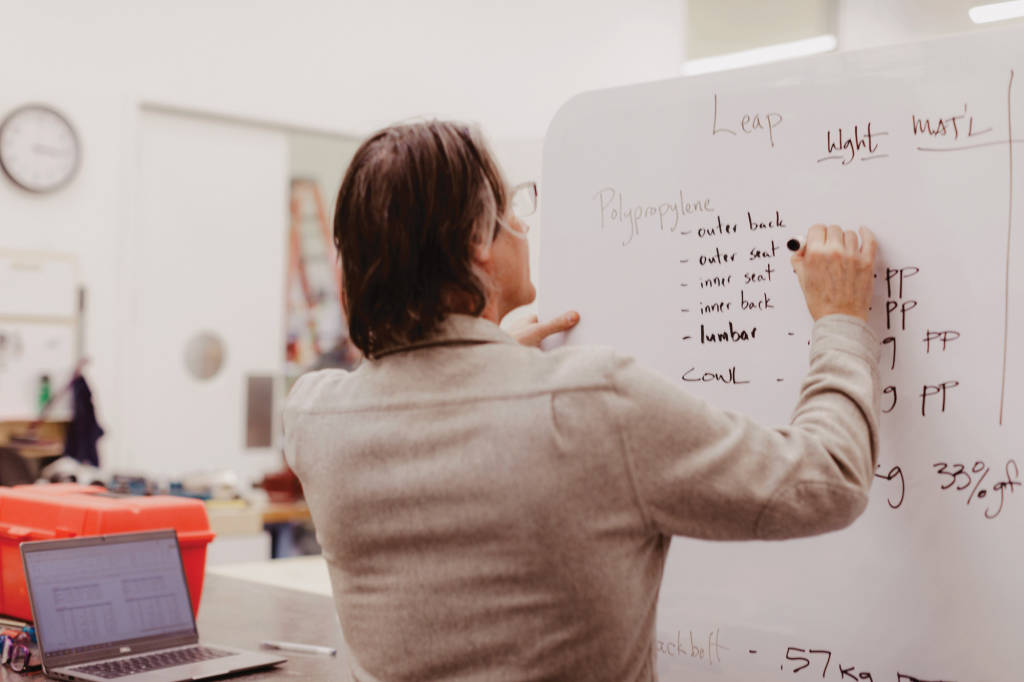 Leap
Wght MAT'L
Polypropylene
- outer back
- outer seat
- inner seat PP
- inner back PP
- lumbar - g PP
COWL - g PP
kg 33% gf
- .57 kg